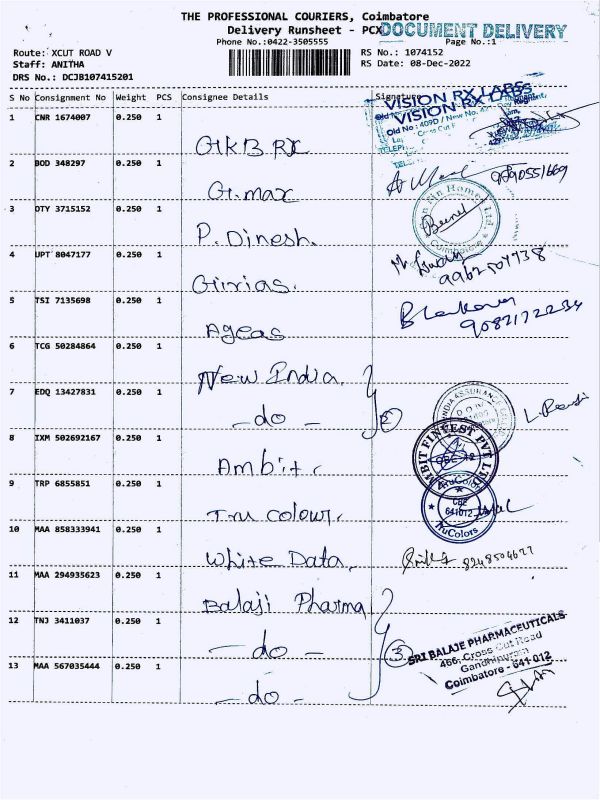 THE PROFESSIONAL COURIERS, Coimbatore
Delivery Runsheet - PCX
DOCUMENT DELIVERY
Phone No.:0422-3505555
Page No.:1
Route: XCUT ROAD V
RS No.: 1074152
Staff: ANITHA
RS Date: 08-Dec-2022
DRS No.: DCJB107415201
S No Consignment No Weight PCS Consignee Details Signature
VISION RX LABS
VISION RX LABS
Old No: 409D / New No. 42
Cross Cut
1 CNR 1674007 0.250 1 GKB RX
2 BOD 348297 0.250 1 G.max 9890551669
3 DTY 3715152 0.250 1 P. Dinesh.
Coimbatore
4 UPT 8047177 0.250 1 Girias. 9962507738
5 TSI 7135698 0.250 1 Ageas 9082172234
6 TCG 50284864 0.250 1 New India.
7 EDQ 13427831 0.250 1 - do - 2
INDIA ASSURANCE
8 IXM 502692167 0.250 1 Ambit.
MBIT FINVEST PVT LT
9 TRP 6855851 0.250 1 Tru colour.
TruColors
CBE
641012
TruColors
10 MAA 858333941 0.250 1 White Data. 8248504627
11 MAA 294935623 0.250 1 Balaji Pharma
12 TNJ 3411037 0.250 1 - do - 3
SRI BALAJE PHARMACEUTICALS
466, Cross Cut Road
Gandhipuram
Coimbatore - 641 012
13 MAA 567035444 0.250 1 - do -